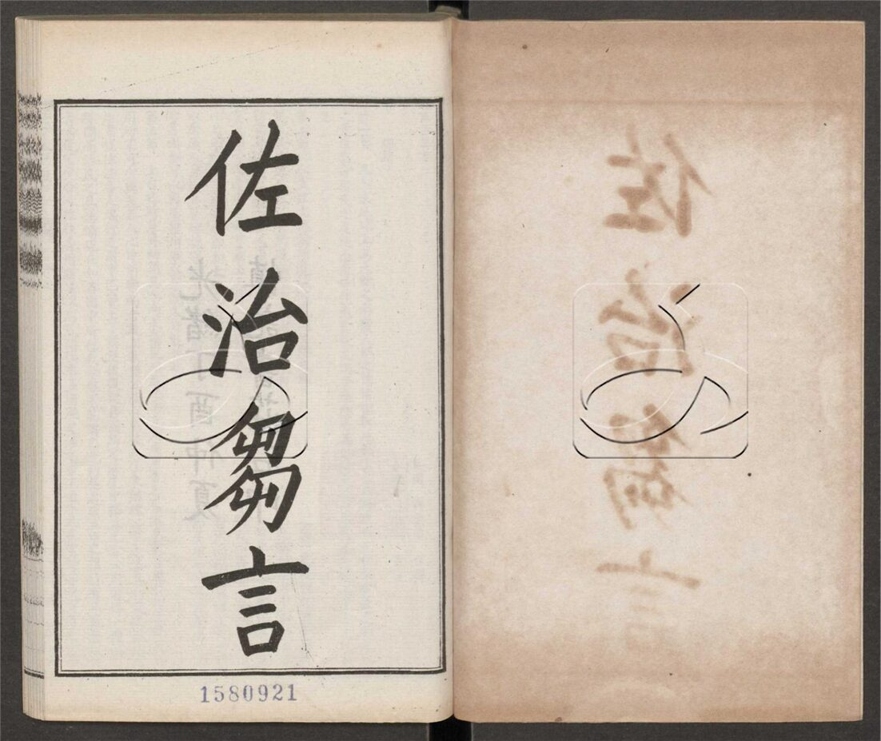 佐治芻言
1580921